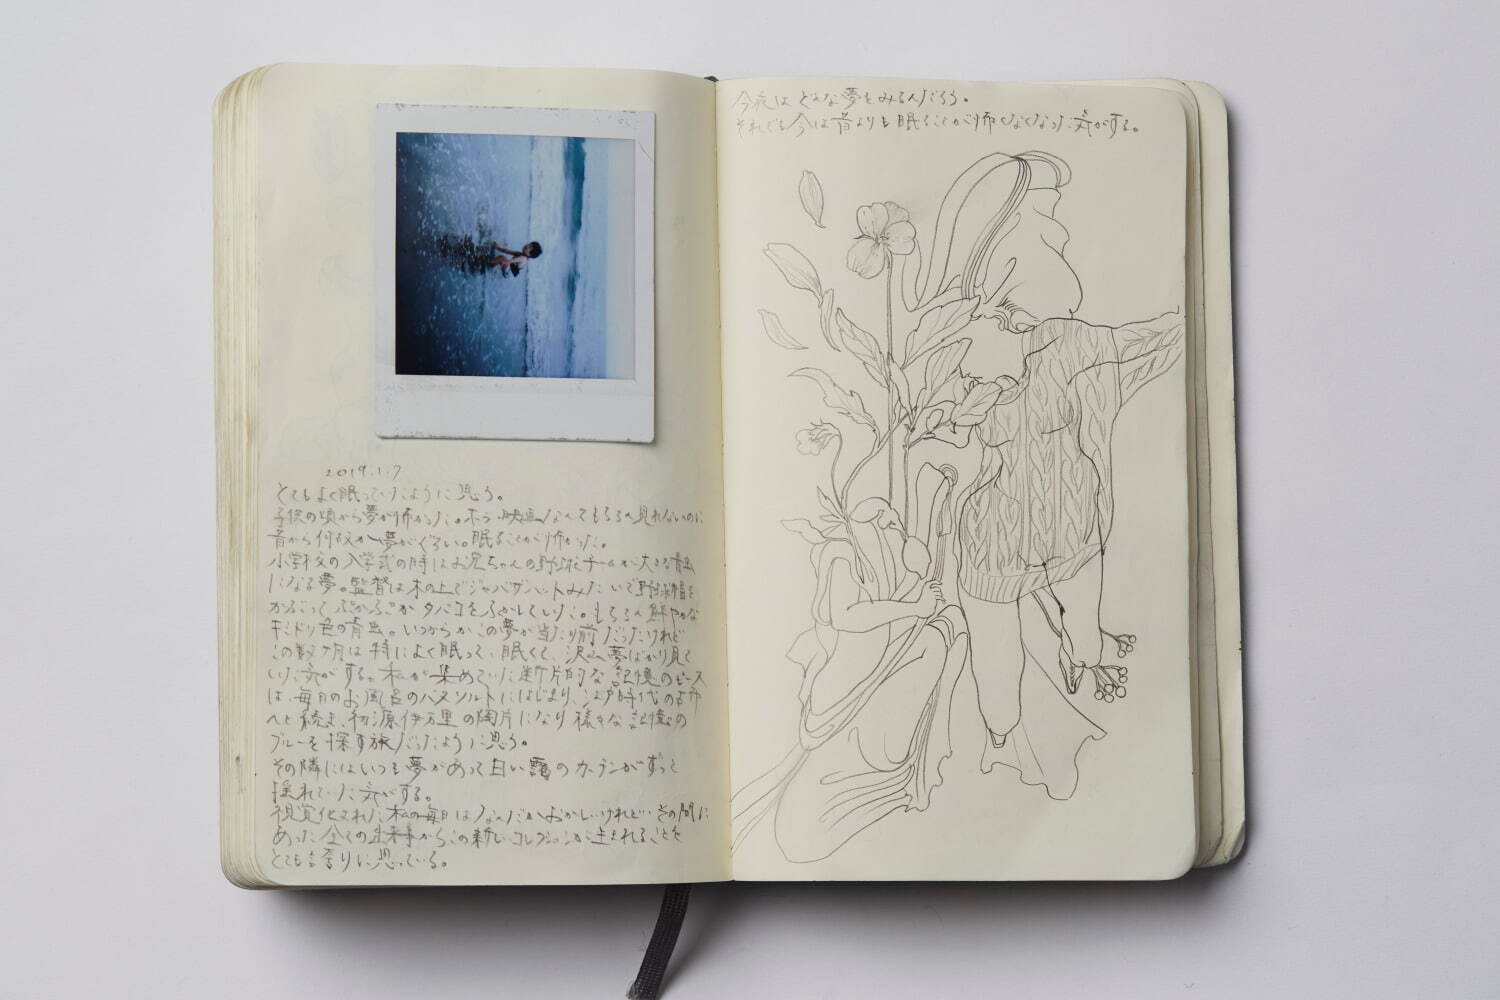 2019.1.7
とてもよく眠っていたように思う。
子供の頃から夢が怖かった。ホラー映画なんてもちろん見れないのに
昔から何故か夢がぐろい。眠ることが怖かった。
小学校の入学式の時はお兄ちゃんの野球チームが大きな青虫
になる夢。監督は木の上でジャバザハットみたいで野球帽を
かぶってぷかぷかタバコをふかしていた。もちろん鮮やかな
キミドリ色の青虫。いつからかこの夢が当たり前だったけれど
この数ヶ月は特によく眠って、眠くて、沢山夢ばかり見て
いた気がする。私が集めていた断片的な記憶のピース
は、毎日のお風呂のバスソルトにはじまり、江戸時代の古布
へと続き、初源伊万里の陶片になり様々な記憶の
ブルーを探す旅だったように思う。
その隣にはいつも夢があって白い靄のカーテンがずっと
揺れていた気がする。
視覚化された私の毎日はなんだかおかしいけれど、その間に
あった全ての出来事からこの新しいコレクションが生まれることを
とても誇りに思っている。
今夜はどんな夢をみるんだろう。
それでも今は昔よりも眠ることが怖くなくなった気がする。